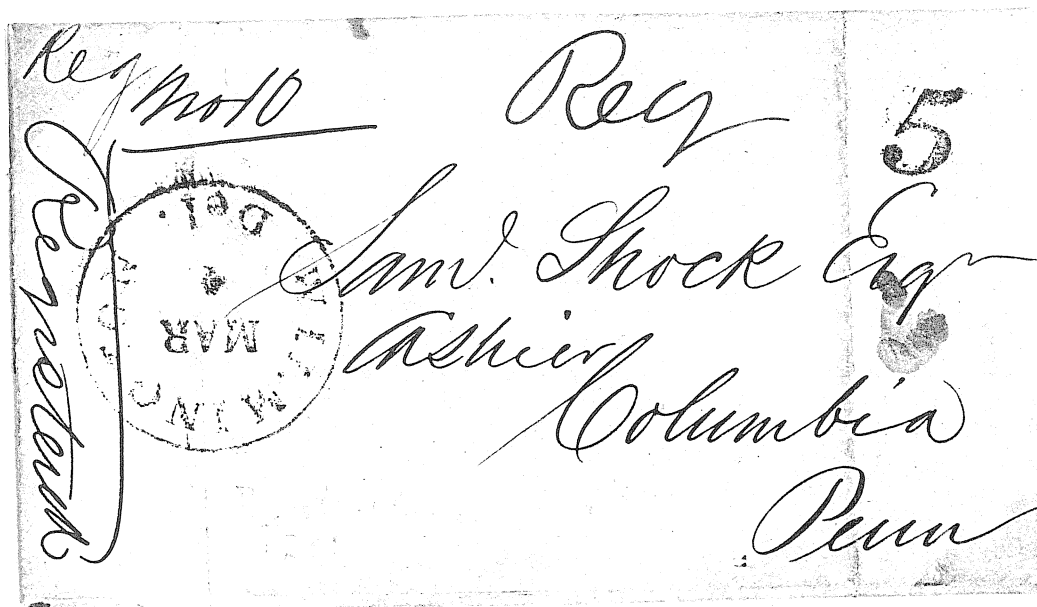 Reg
No 10
Reg
5
Registered
WILMINGTON
Del.
MAR
Saml. Shock Esqr
Cashier
Columbia
Penn